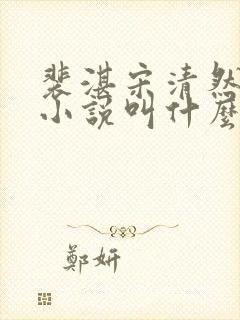 裴湛宋清然
小說叫什麼
鄭妍